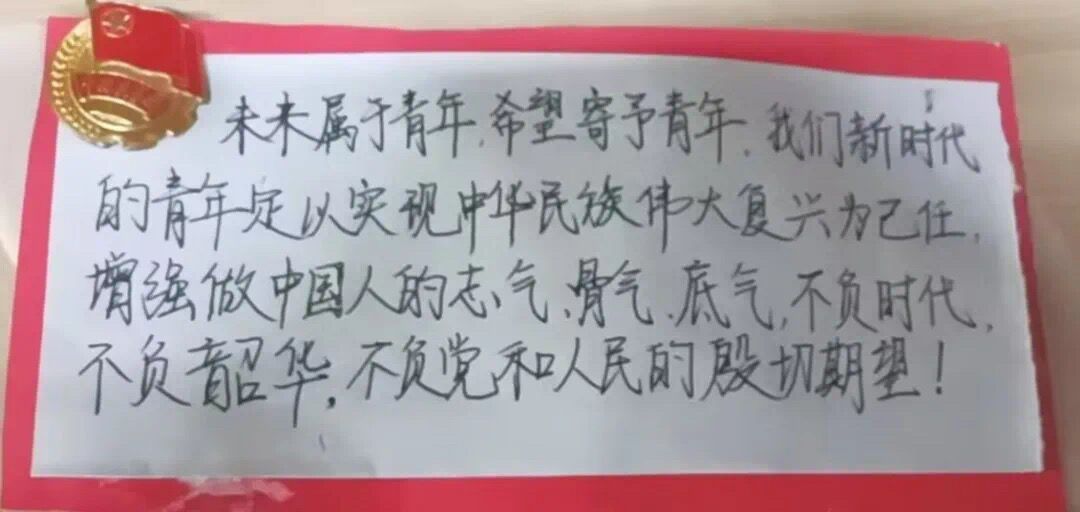 未来属于青年,希望寄予青年,我们新时代
的青年定以实现中华民族伟大复兴为己任,
增强做中国人的志气、骨气、底气,不负时代,
不负韶华,不负党和人民的殷切期望!